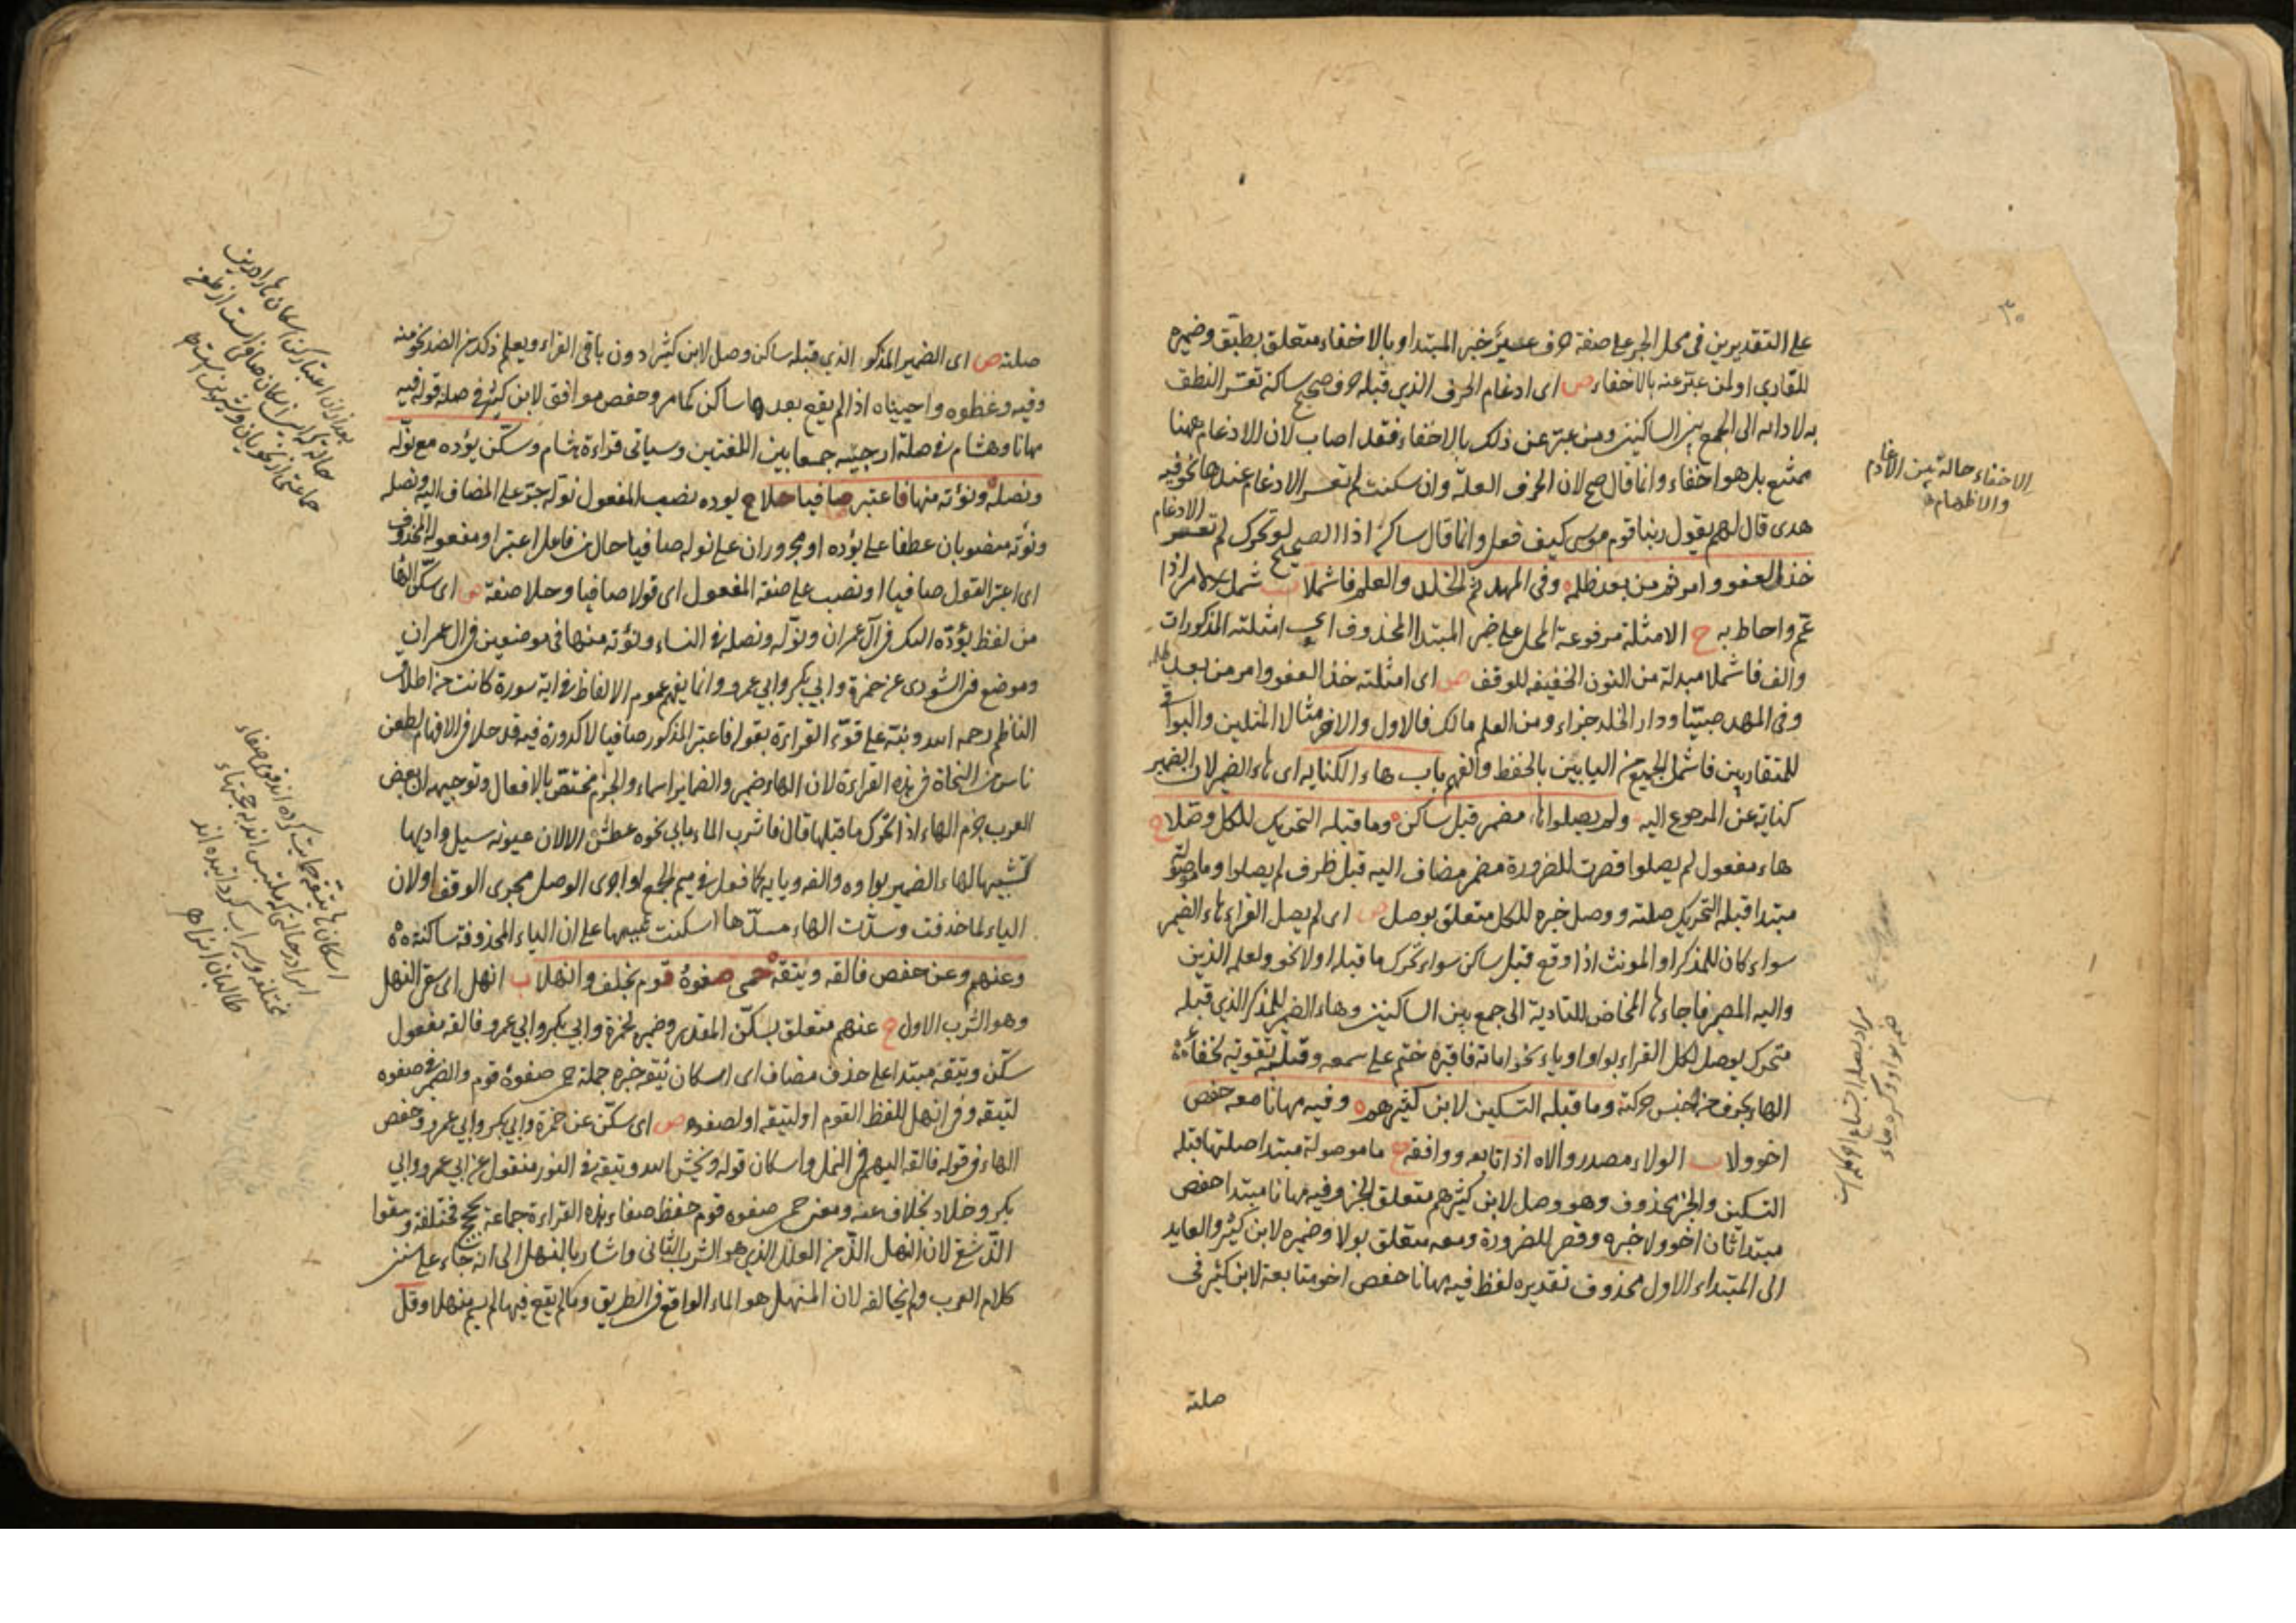 ٣٠
على التقديرين فى محل الجر على صفة حرف عسير خبر المبتدا و بالاخفاء متعلق بطبق وضميره
للقارى او لمن عبّر عنه بالاخفاء ص اى ادغام الحرف الذي قبله حرف صحيح ساكنة تعسّر النطق
به لادائه الى الجمع بين الساكنين ومن عبّر عن ذلك بالاخفاء فقد اصاب لان الادغام ههنا
ممتنع بل هو اخفاء وانما قال صح لان الحرف العلة وان سكنت لم تعسر الادغام عندها نحو فيه
هدى قال لهم يقول ربنا قوم موسى كيف فعل وانما قال ساكن اذا الصحيح لو تحرك لم تعسر الادغام
خذ العفو وامر ثم من بعد ظلمه وفى المهد ثم الخلد والعلم فاشملا ب شمل الامر اذا
عمّ واحاط به ح الامثلة مرفوعة المحل على خبر المبتدا المحذوف اي امثلته المذكورات
والف فاشملا مبدلة من النون الخفيفة للوقف ص اى امثلته خذ العفو وامر من بعد ظلمه
وفى المهد صبيّا ودار الخلد جزاء ومن العلم مالك فالاول والاخر مثالا المثلين والبواقى
للمتقاربين فاشمل الجميع من البابين بالحفظ والفهم باب هاء الكناية اى هاء الضمير لان الضمير
كناية عن المرجوع اليه ولم يصلوا ها مضمر قبل ساكن وما قبله التحريك للكل وصّلا ح
هاء مفعول لم يصلوا قصرت للضرورة مضمر مضاف اليه قبل ظرف لم يصلوا وما موصولة
مبتدا قبله التحريك صلته ووصل خبره للكل متعلق بوصل ص اى لم يصل القراء هاء الضمير
سواء كان للمذكر او المونث اذا وقع قبل ساكن سواء تحرك ما قبله او لا نحو ولعلمه الذين
واليه المصير فاجاءها المخاض للتادية الى جمع بين الساكنين وهاء الضمير للمذكر الذى قبله
متحرك يوصل لكل القراء بواو او ياء نحو اماته فاقبره ختم على سمعه وقلبه تقوية لخفاء
الهاء بحرف من جنس حركته وما قبله التسكين لابن كثيرهم وفيه مهانا معه حفص
اخو ولا ب الولاء مصدر والاه اذا تابعه ووافقه ح ما موصولة مبتدا صلتها قبله
التسكين والخبر محذوف وهو وصل لابن كثيرهم متعلق الخبر وفيه مهانا مبتدا حفص
مبتدا ثان اخو ولا خبره وقصر للضرورة ومعه متعلق بولا وضميره لابن كثير والعايد
الى المبتداء الاول محذوف تقديره لفظ فيه مهانا حفص اخو متابعة لابن كثير فى
صلته
الاخفاء حالة بين الادغام
والاظهار
صلته ص اى الضمير المذكور الذي قبله ساكن وصل لابن كثير دون باقى القراء ويعلم ذلك من الضد نحو منه
وفيه وغطوه واجيناه اذا لم يقع بعدها ساكن كما مر وحفص موافق لابن كثير فى صلة قوله فيه
مهانا وهشام فى صلة ارجيه جمعا بين اللغتين وسياتى قراءة هشام وسكّن يؤده مع نولّه
ونصله ونؤته منها فاعتبر صافيا حلا ح يوده نصب المفعول نوله جر على المضاف اليه ونصله
ونؤته منصوبان عطفا على يؤده او مجروران على نوله صافيا حال من فاعل اعتبر او مفعوله المحذوف
اى اعتبر القول صافيا او نصب على صفة المفعول اى قولا صافيا وحلا صفة ص اى سكّن الهاء
من لفظ يؤدّه اليك فى آل عمران ونولّه ونصله فى النساء ونؤته منها فى موضعين فى ال عمران
وموضع فى الشورى عن حمزة وابي بكر وابي عمرو وانما يفهم عموم الالفاظ فى اية سورة كانت من اطلاق
الناظم رحمه الله ونبّه على قوّة القراءة بقوله فاعتبر المذكور صافيا لا كدورة فيه قد حلا فى الافهام لطعن
ناس من النحاة فى هذه القراءة لان الهاء ضمير والضماير اسماء والجزم مختصّ بالافعال وتوجيهه ان بعض
العرب جزم الهاء اذا تحرك ما قبلها قال فاشرب الماء ما بي نحوه عطش الا لان عيونه سيل واديها
تشبيها لهاء الضمير بواوه والفه ويايه كما فعل فى ميم الجمع او اجرى الوصل مجرى الوقف او لان
الياء لما حذفت وسدّت الهاء مسدّها اسكنت تنبيها على ان الياء المحذوفة ساكنة
وعنهم وعن حفص فالقه ويتقه حمى صفوهُ قوم بخلف وانهلا ب انهل اى سقى النهل
وهو الشرب الاول ح عنهم متعلق بسكّن المقدر وضميره لحمزة وابي بكر وابي عمرو فالقه مفعول
سكّن ويتقه مبتدا على حذف مضاف اى اسكان يتقه خبره جملة حمى صفوهُ قوم والضمير فى صفوه
ليتقه وفى انهل للفظ القوم او ليتقه او لصفوه ص اى سكّن عن حمزة وابي بكر وابي عمرو وحفص
الهاء فى قوله فالقه اليهم فى النمل واسكان قوله ويخش الله ويتقه فى النور منقول عن ابي عمرو وابي
بكر وخلاد بخلاف عنه ومعنى حمى صفوه قوم حفظ صفاء هذه القراءة جماعة بحجج مختلفة وسقوا
الذّ سقى لان النهل الذّ من العلل الذي هو الشرب الثانى واشار بالنهل الى انه جاء على سنن
كلام العرب ولم يخالفه لان المنهل هو الماء الواقع فى الطريق وما لم يقع فيها لم يسم منهلا وقل